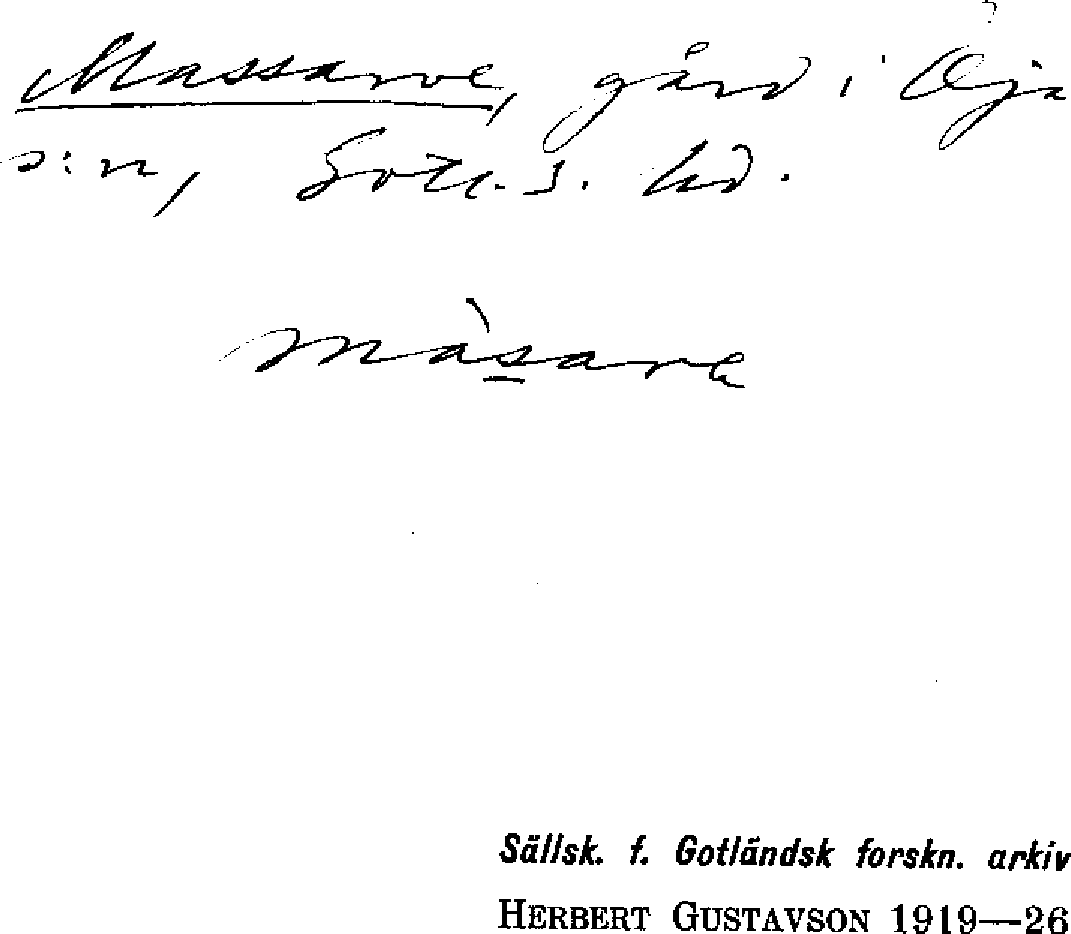 Massarve, gård i Öja
s:n, Gotl. s. hd.
màsarvɐ
Sällsk. f. Gotländsk forskn. arkiv
HERBERT GUSTAVSON 1919—26